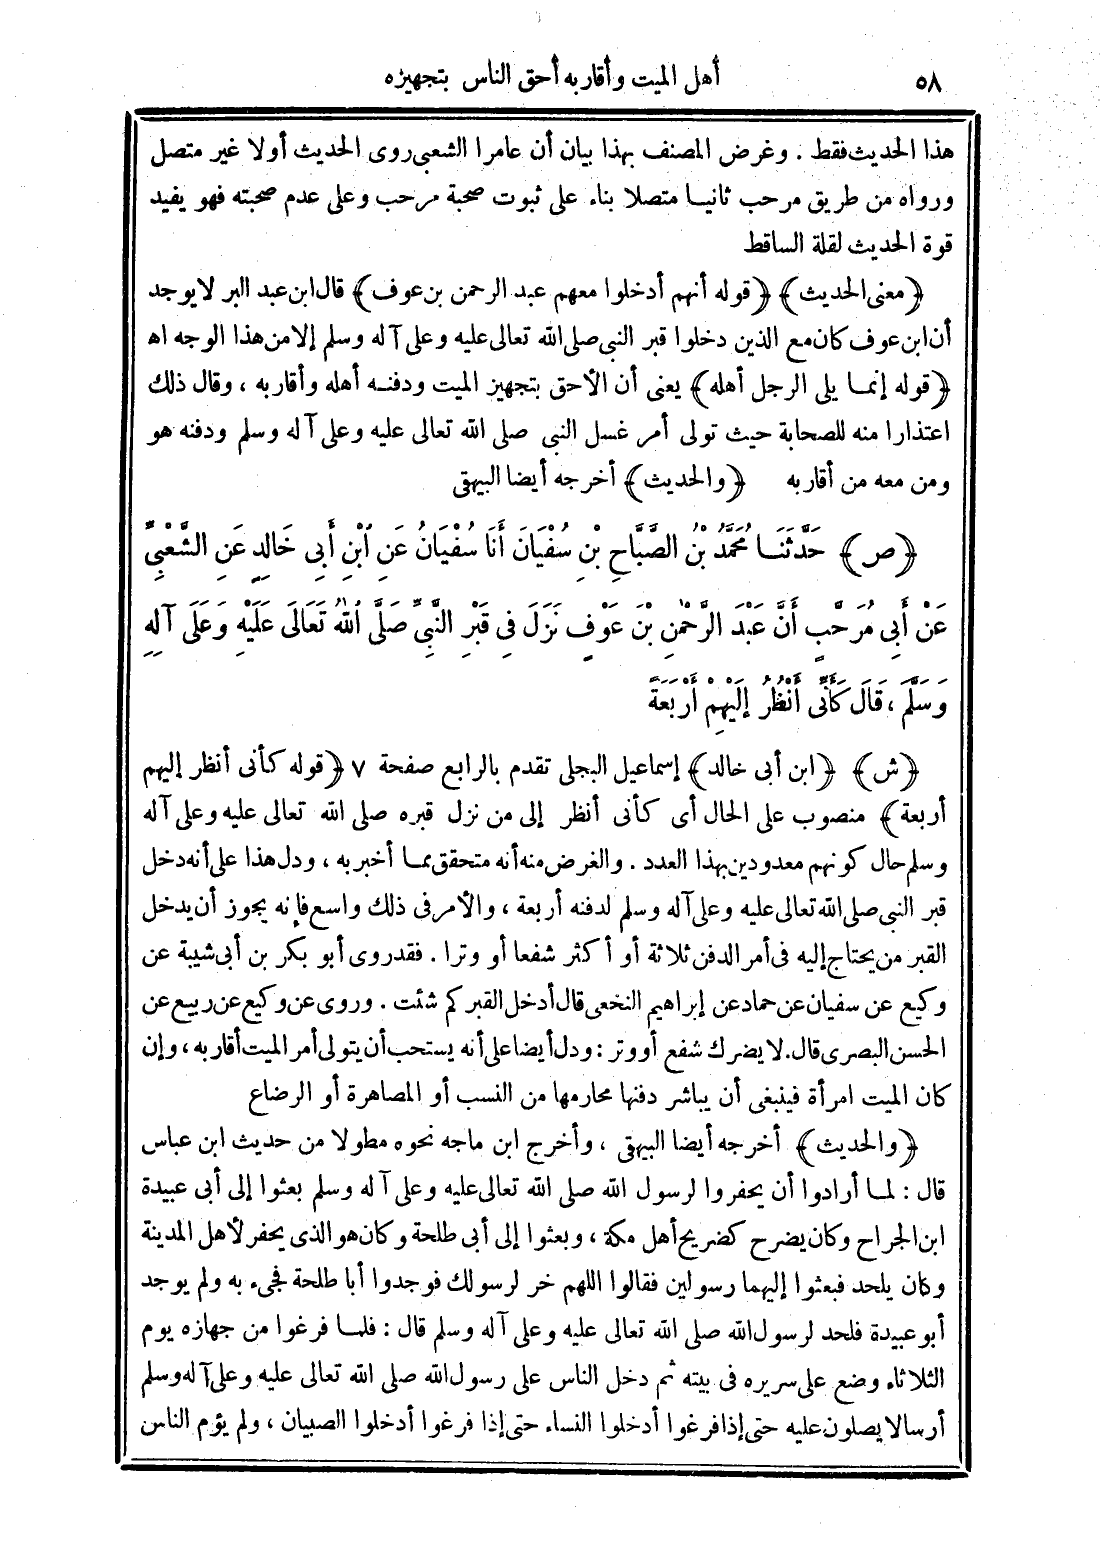 ٥٨
أهل الميت وأقاربه أحق الناس بتجهيزه
هذا الحديث فقط . وغرض المصنف بهذا بيان أن عامرا الشعبى روى الحديث أولا غير متصل
ورواه من طريق مرحب ثانيا متصلا بناء على ثبوت صحبة مرحب وعلى عدم صحبته فهو يفيد
قوة الحديث لقلة الساقط
﴿معنى الحديث﴾ ﴿قوله أنهم أدخلوا معهم عبد الرحمن بن عوف﴾ قال ابن عبد البر لا يوجد
أن ابن عوف كان مع الذين دخلوا قبر النبى صلى الله تعالى عليه وعلى آله وسلم إلا من هذا الوجه اه
﴿قوله إنما يلى الرجل أهله﴾ يعنى أن الأحق بتجهيز الميت ودفنه أهله وأقاربه ، وقال ذلك
اعتذارا منه للصحابة حيث تولى أمر غسل النبى صلى الله تعالى عليه وعلى آله وسلم ودفنه هو
ومن معه من أقاربه ﴿والحديث﴾ أخرجه أيضا البيهقى
﴿ص﴾ حَدَّثَنَا مُحَمَّدُ بْنُ الصَّبَّاحِ بْنِ سُفْيَانَ أَنَا سُفْيَانُ عَنِ ابْنِ أَبِى خَالِدٍ عَنِ الشَّعْبِىِّ
عَنْ أَبِى مُرَحَّبٍ أَنَّ عَبْدَ الرَّحْمٰنِ بْنَ عَوْفٍ نَزَلَ فِى قَبْرِ النَّبِىِّ صَلَّى اللهُ تَعَالَى عَلَيْهِ وَعَلَى آلِهِ
وَسَلَّمَ ، قَالَ كَأَنِّى أَنْظُرُ إِلَيْهِمْ أَرْبَعَةً
﴿ش﴾ ﴿ابن أبى خالد﴾ إسماعيل البجلى تقدم بالرابع صفحة ٧ ﴿قوله كأنى أنظر إليهم
أربعة﴾ منصوب على الحال أى كأنى أنظر إلى من نزل قبره صلى الله تعالى عليه وعلى آله
وسلم حال كونهم معدودين بهذا العدد . والغرض منه أنه متحقق بما أخبر به ، ودل هذا على أنه دخل
قبر النبى صلى الله تعالى عليه وعلى آله وسلم لدفنه أربعة ، والأمر فى ذلك واسع فإنه يجوز أن يدخل
القبر من يحتاج إليه فى أمر الدفن ثلاثة أو أكثر شفعا أو وترا . فقد روى أبو بكر بن أبى شيبة عن
وكيع عن سفيان عن حماد عن إبراهيم النخعى قال أدخل القبر كم شئت . وروى عن وكيع عن ربيع عن
الحسن البصرى قال . لا يضرك شفع أو وتر : ودل أيضا على أنه يستحب أن يتولى أمر الميت أقاربه ، وإن
كان الميت امرأة فينبغى أن يباشر دفنها محارمها من النسب أو المصاهرة أو الرضاع
﴿والحديث﴾ أخرجه أيضا البيهقى ، وأخرج ابن ماجه نحوه مطولا من حديث ابن عباس
قال : لما أرادوا أن يحفروا لرسول الله صلى الله تعالى عليه وعلى آله وسلم بعثوا إلى أبى عبيدة
ابن الجراح وكان يضرح كضريح أهل مكة ، وبعثوا إلى أبى طلحة وكان هو الذى يحفر لأهل المدينة
وكان يلحد فبعثوا إليهما رسولين فقالوا اللهم خر لرسولك فوجدوا أبا طلحة فجىء به ولم يوجد
أبو عبيدة فلحد لرسول الله صلى الله تعالى عليه وعلى آله وسلم قال : فلما فرغوا من جهازه يوم
الثلاثاء وضع على سريره فى بيته ثم دخل الناس على رسول الله صلى الله تعالى عليه وعلى آله وسلم
أرسالا يصلون عليه حتى إذا فرغوا أدخلوا النساء حتى إذا فرغوا أدخلوا الصبيان ، ولم يؤم الناس